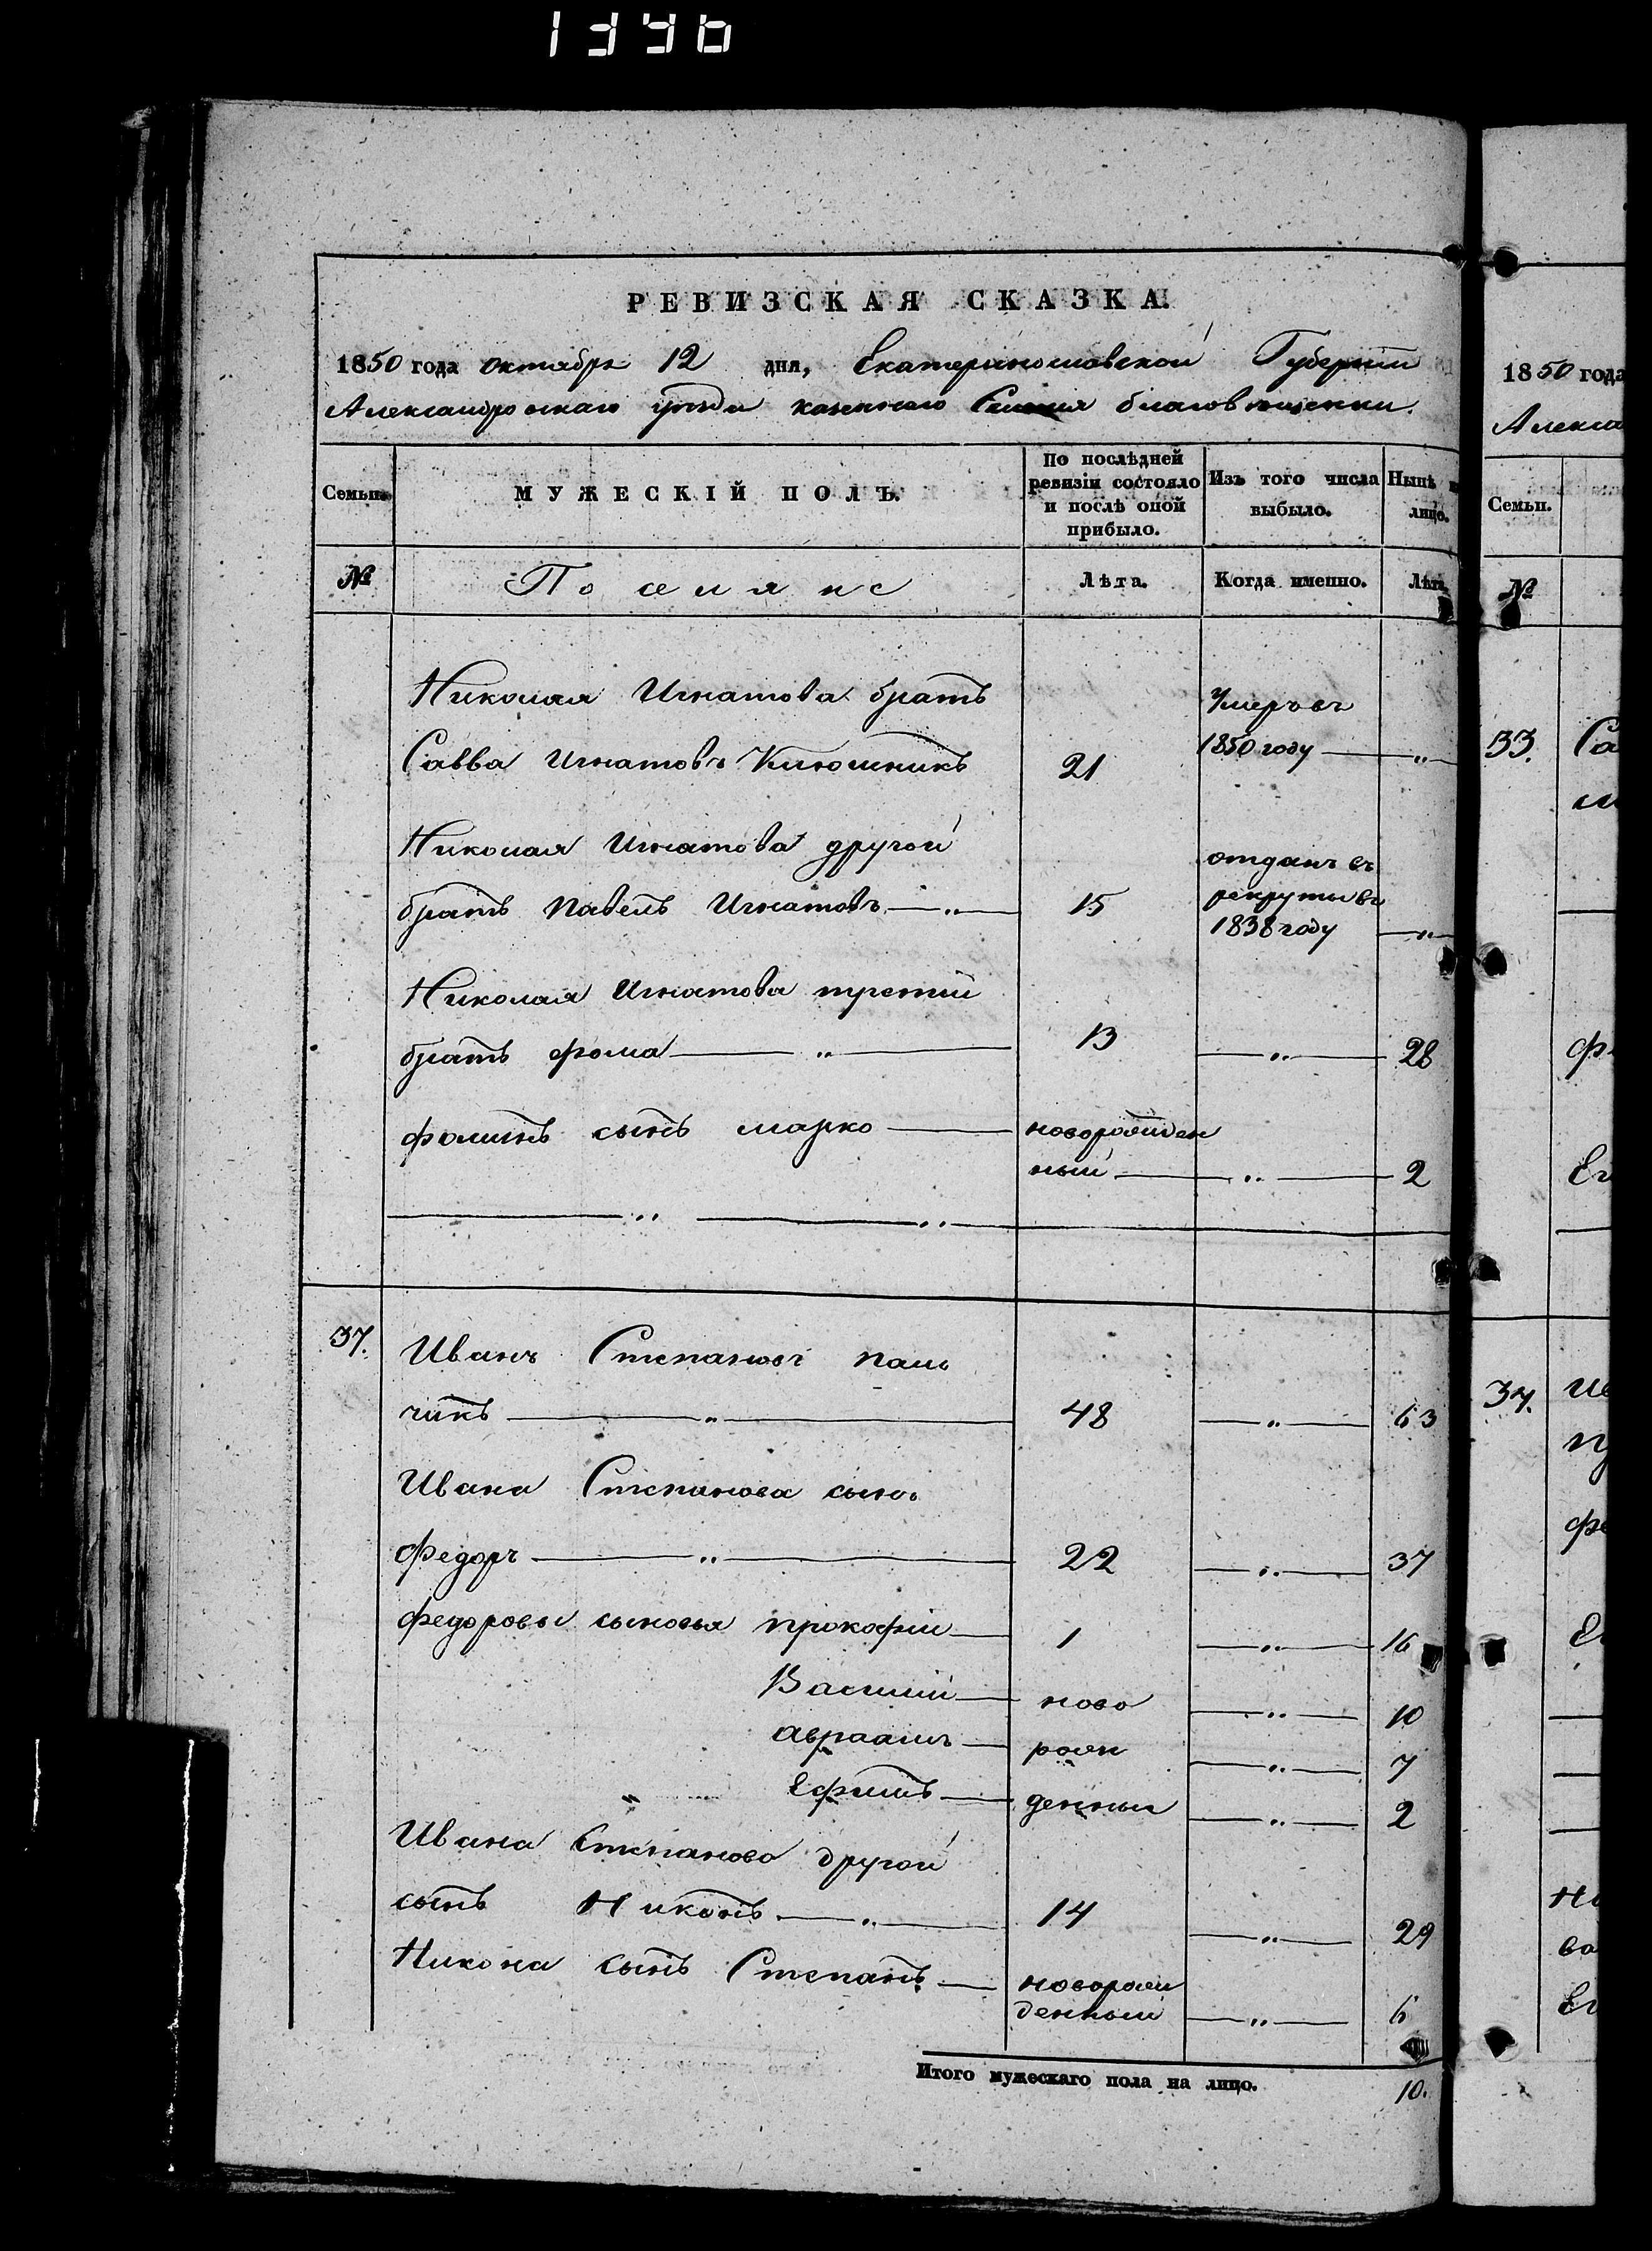 1346
РЕВИЗСКАЯ СКАЗКА.
1850 года октября 12 дня, Екатеринославской Губернии
Александровскаго уезда казеннаго Селения благовещенки.
Семьи.
МУЖЕСКІЙ ПОЛЪ.
По послѣдней ревизіи состояло и послѣ оной прибыло.
Изъ того числа выбыло.
Нынѣ
лицо.
№
Поселяне
Лѣта.
Когда именно.
Лѣта
Николая Игнатова братъ
Умеръ въ
Савва Игнатовъ Ключникъ 21 1850 году — „
Николая Игнатова другой
отданъ въ
братъ Павелъ Игнатовъ — „ — 15 рекруты въ
1838 году — „
Николая Игнатова третій
братъ фома — „ — 13 — „ — 28
фоминъ сынъ марко — новорожден
ный — „ — 2
37. Иванъ Степановъ паль
чикъ — „ — 48 — „ — 63
Ивана Степанова сынъ
Федоръ — „ — 22 — „ — 37
Федоровы сыновья прокофій — 1 — „ — 16
Василій — ново — „ — 10
авраамъ — рож — „ — 7
Ефимъ — денныи — „ — 2
Ивана Степанова другой
сынъ Никонъ — „ — 14 — „ — 29
Никона сынъ Степанъ — новорож
денный — „ — 6
Итого мужескаго пола на лицо. 10.
1850 года
Алекса
Семьи.
№
33. Са
ф
Ег
37. Ив
пр
фе
Ег
Ни
ва
Ег